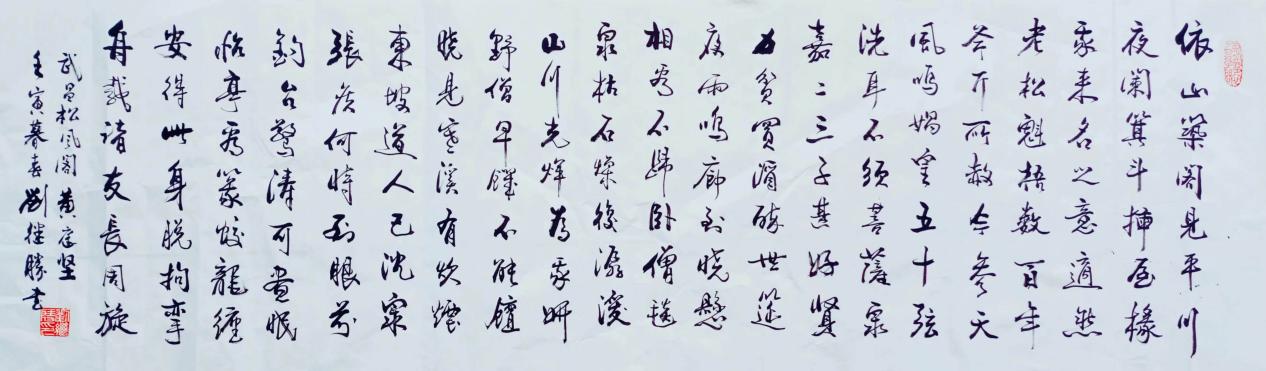 依山築閣見平川
夜闌箕斗插屋椽
我来名之意適然
老松魁梧數百年
斧斤所赦今参天
風鳴媧皇五十弦
洗耳不須菩薩泉
嘉二三子甚好賢
力貧買酒醉世筵
夜雨鳴廊到曉懸
相看不歸卧僧氈
泉枯石燥復潺湲
山川光輝為我妍
野僧早饑不能饘
曉見寒溪有炊煙
東坡道人已沈泉
張侯何時到眼前
釣台驚濤可晝眠
怡亭看篆蛟龍纏
安得此身脱拘攣
舟載諸友長周旋
武昌松風閣 黄庭坚
壬寅暮春 劉继勝书